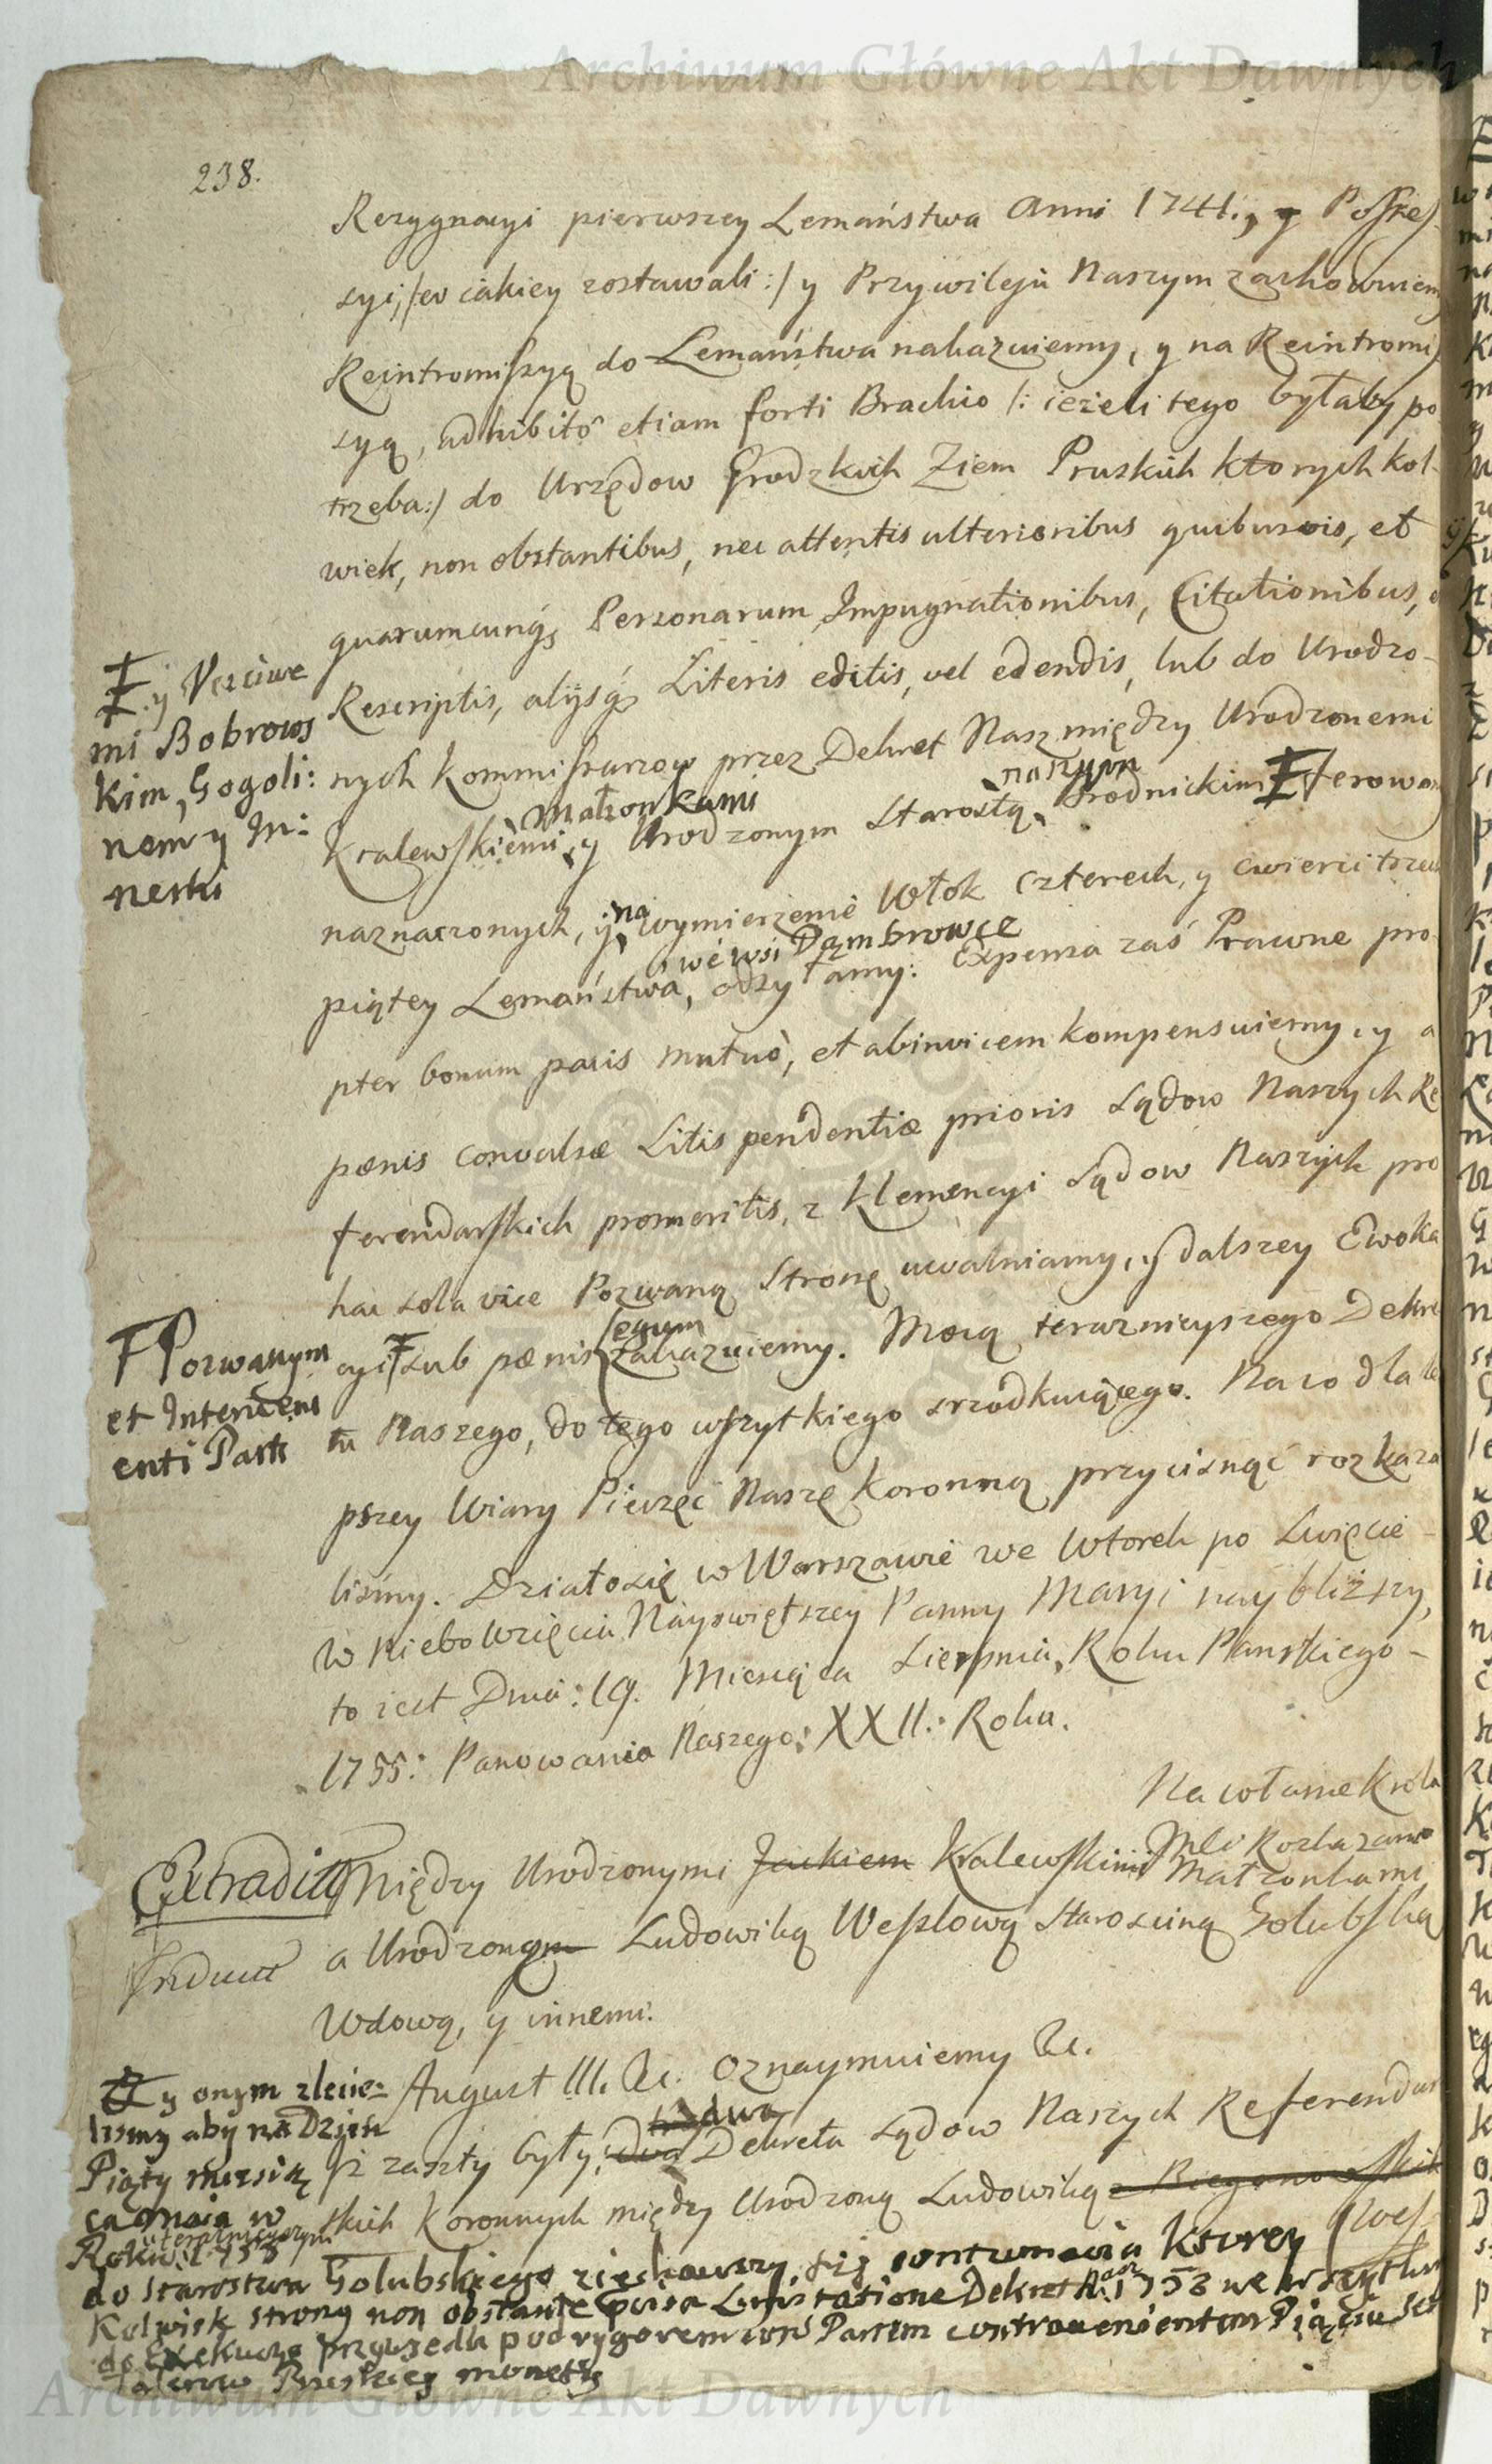 Archiwum Główne Akt Dawnych
238.
Rezygnacyi pierwszey Lemaństwa Anni 1741., y Posses
syi, /:w iakiey zostawali:/ y Przywileju Naszym zachowuiemy
Reintromissyą do Lemaństwa nakazuiemy, y na Reintromis
syą, adhibitô etiam forti Brachio /: ieżeli tego byłaby po
trzeba:/ do Urzędow Grodzkich Ziem Pruskich ktorych kol-
wiek, non obstantibus, nec attentis ulterioribus quibusvis, et
quarumcunq, Personarum Impugnationibus, Citationibus,
Rescriptis, alijsq, Literis editis, vel edendis, lub do Urodzo-
nych Kommissarzow przez Dekret Nasz między Urodzonemi
Małzonkami naszym
Kralewskiemi, y Urodzonym Starostą Brodnickim Ferowany
Ŧ y Uczciwe
mi Bobrows
kim, Gogoli:
nem y In:
neski
naznaczonych, y na wymierzenie Włok czterech, y cwierci trzech
we wsi Dąmbrowce
piątey Lemaństwa, odsyłamy: Expensa zaś Prawne pro
pter bonum pacis mutuò, et abinvicem kompensuiemy, y a
pœnis convulsæ Litis pendentiæ prioris Sądow Naszych Re
ferendarskich promeritis, z Klemencyi Sądow Naszych pro
hac sola vice Pozwaną Stronę uwalniamy, y dalszey Ewoka
cyi Ŧ sub pœnis legum zakazuiemy. Mocą teraznieyszego Dekre
Ŧ Pozwanym
et Interveni
enti Parti
tu Naszego, do tego wszytkiego srzodkuiącego. Na co dla le
pszey Wiary Pieczęć Naszę Koronną przycisnąć rozkaza
liśmy. Działo się w Warszawie we Wtorek po Swięcie
w Niebo Wzięcia Nayswiętszey Panny Maryi naybliższy,
to iest Dnia: 19. Miesiąca Sierpnia, Roku Panskiego-
1755: Panowania Naszego: XXII.: Roku.
Na własne Krola
Jmci Rozkazanie
Extradit Między Urodzonymi Jackiem Kralewskimi Małzonkami
a Urodzoną Ludowiką Wesslową Starosciną Golubską
Wdową, y innemi.
August III. &c. Oznaymuiemy &c.
Iż zaszły były, dwa Dekreta Sądow Naszych Referendar
skich Koronnych między Urodzoną Ludowiką
Ŧ y onym zlecie:
lismy aby na Dzień
Piąty miesią
ca Maia w
Roku 1753
do Starostwa Golubskiego ziechawszy, contumacia Ktorey
Kolwiek strony non obstante
do Exekucyi przywiedli pod rygorem
Talerow Pruskiey monety
Archiwum Główne Akt Dawnych